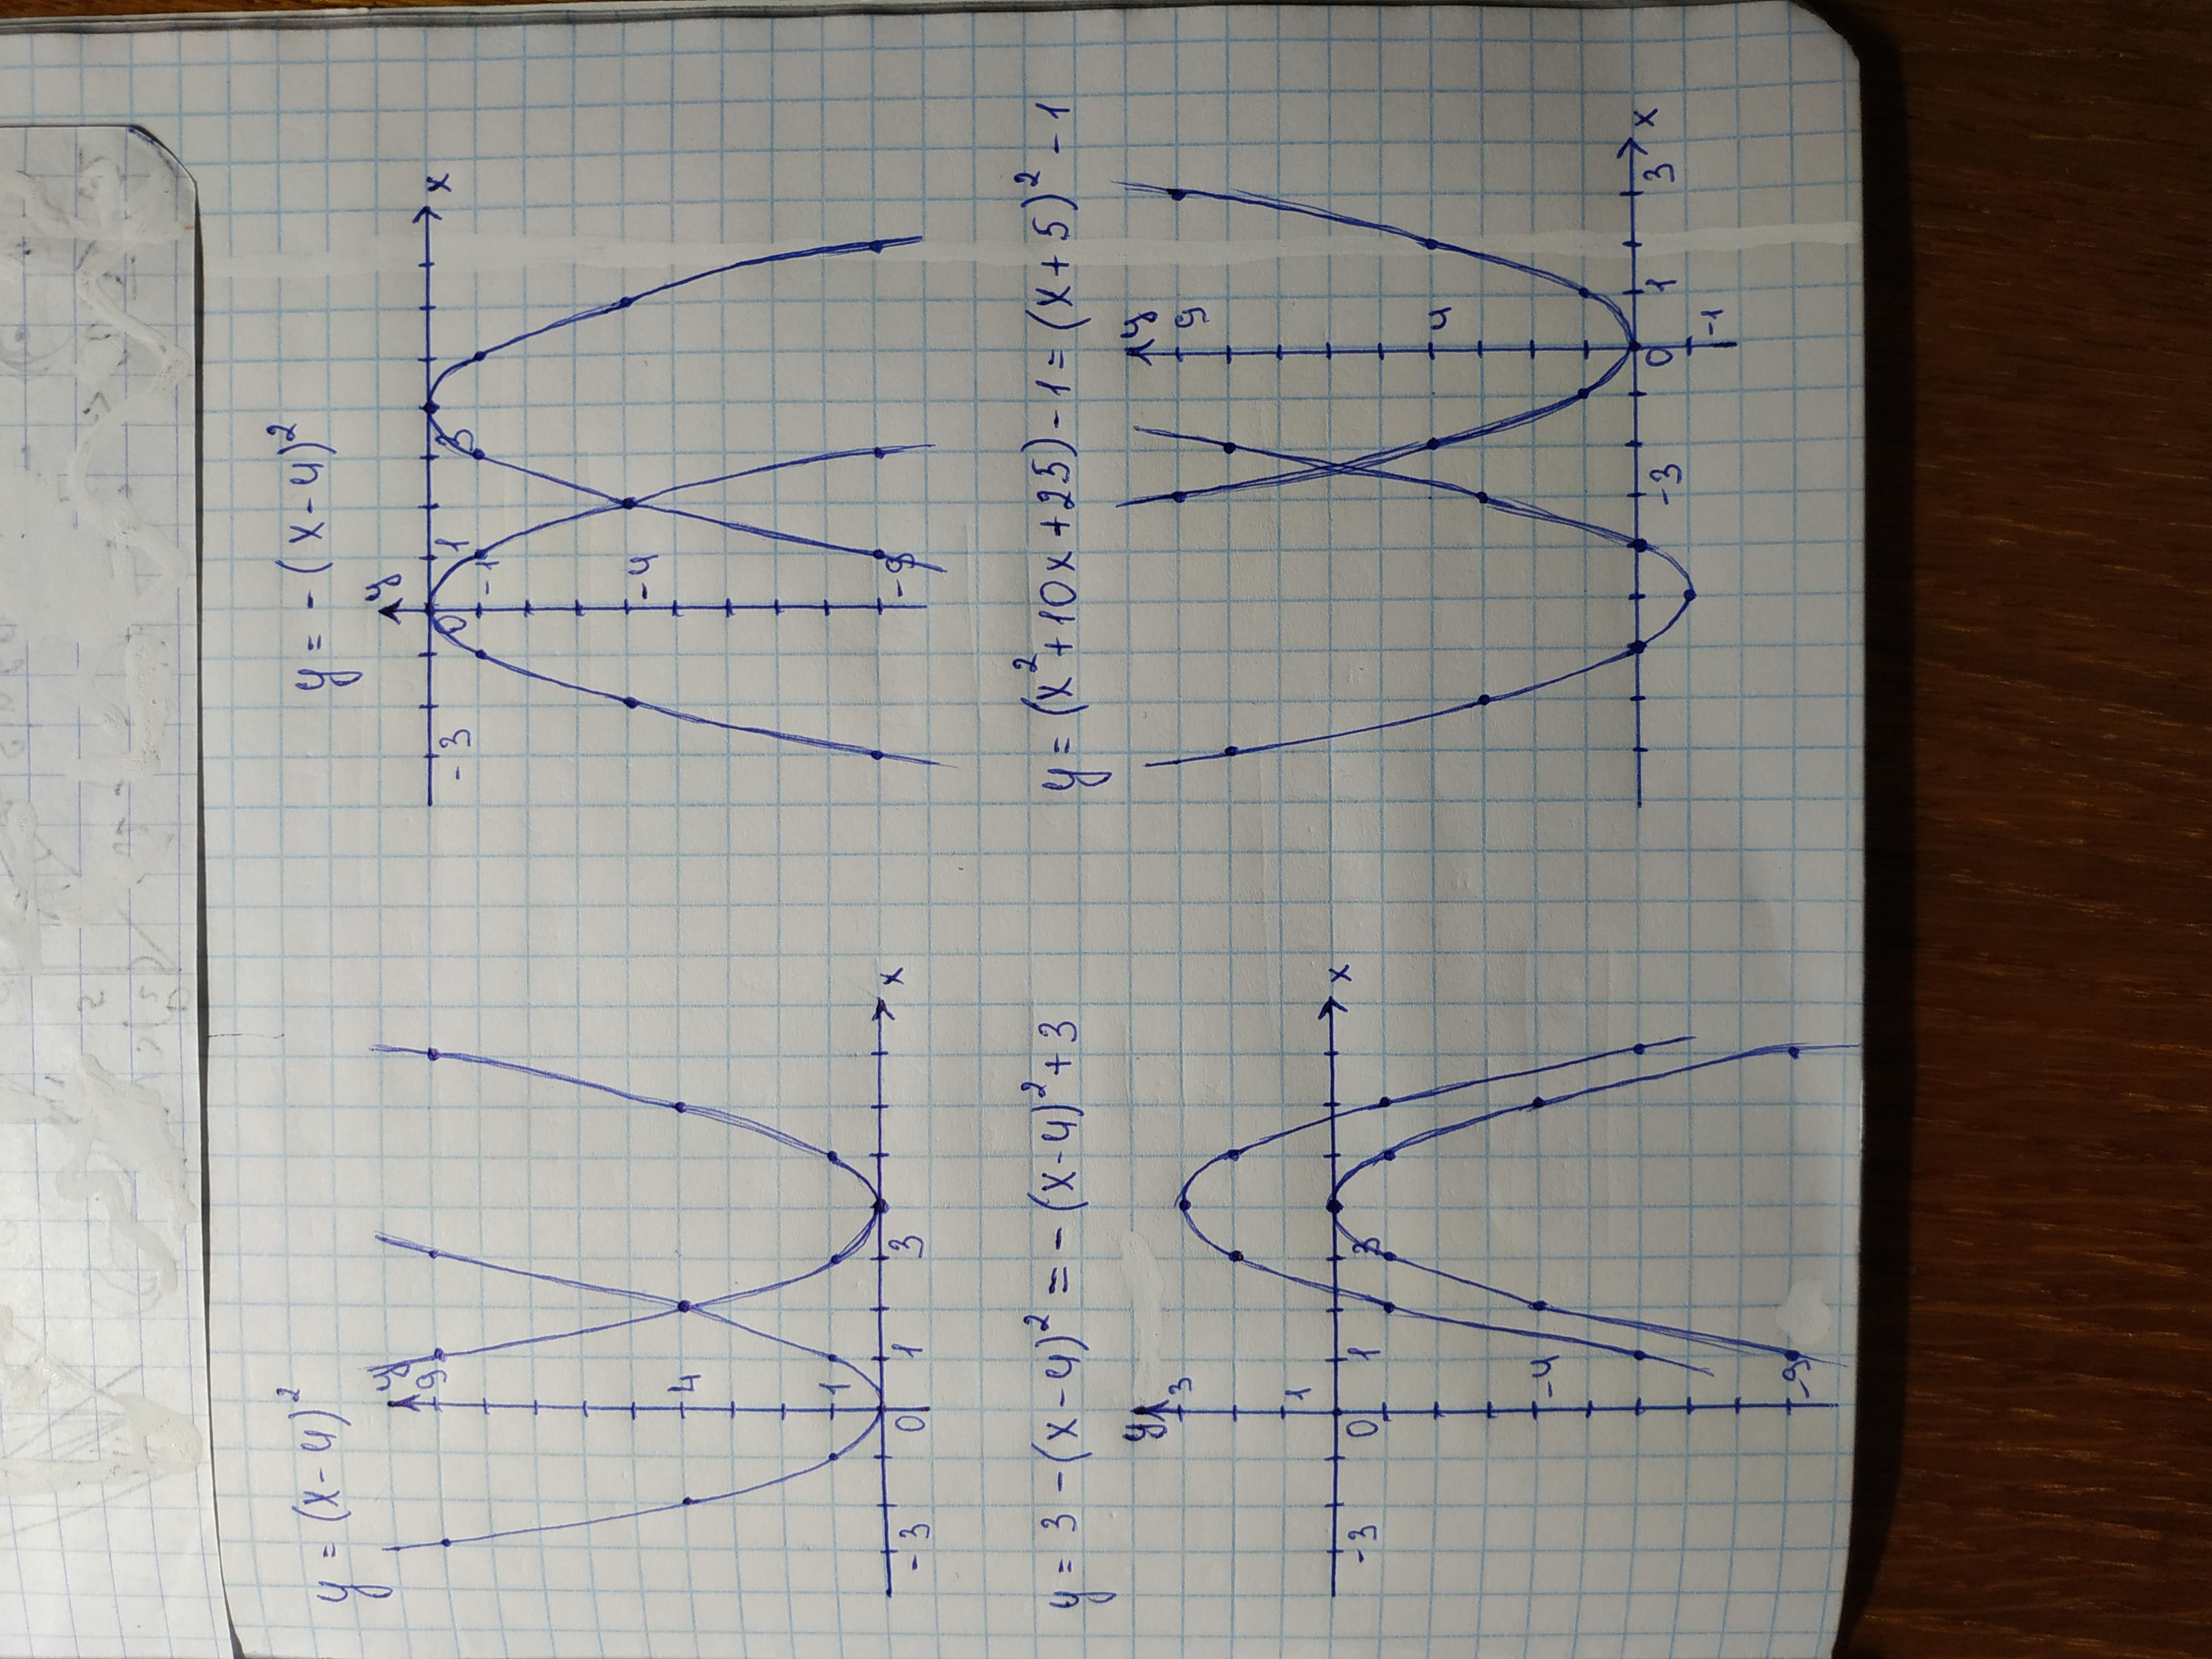 y = (x-4)²
y
9
4
1
0
1
3
-3
x
y = -(x-4)²
y
x
0
1
3
-3
-1
-4
-9
y = 3 - (x-4)² = -(x-4)² + 3
y
3
1
0
1
3
-3
x
-4
-9
y = (x²+10x+25) - 1 = (x+5)² - 1
y
9
4
0
1
3
x
-3
-1